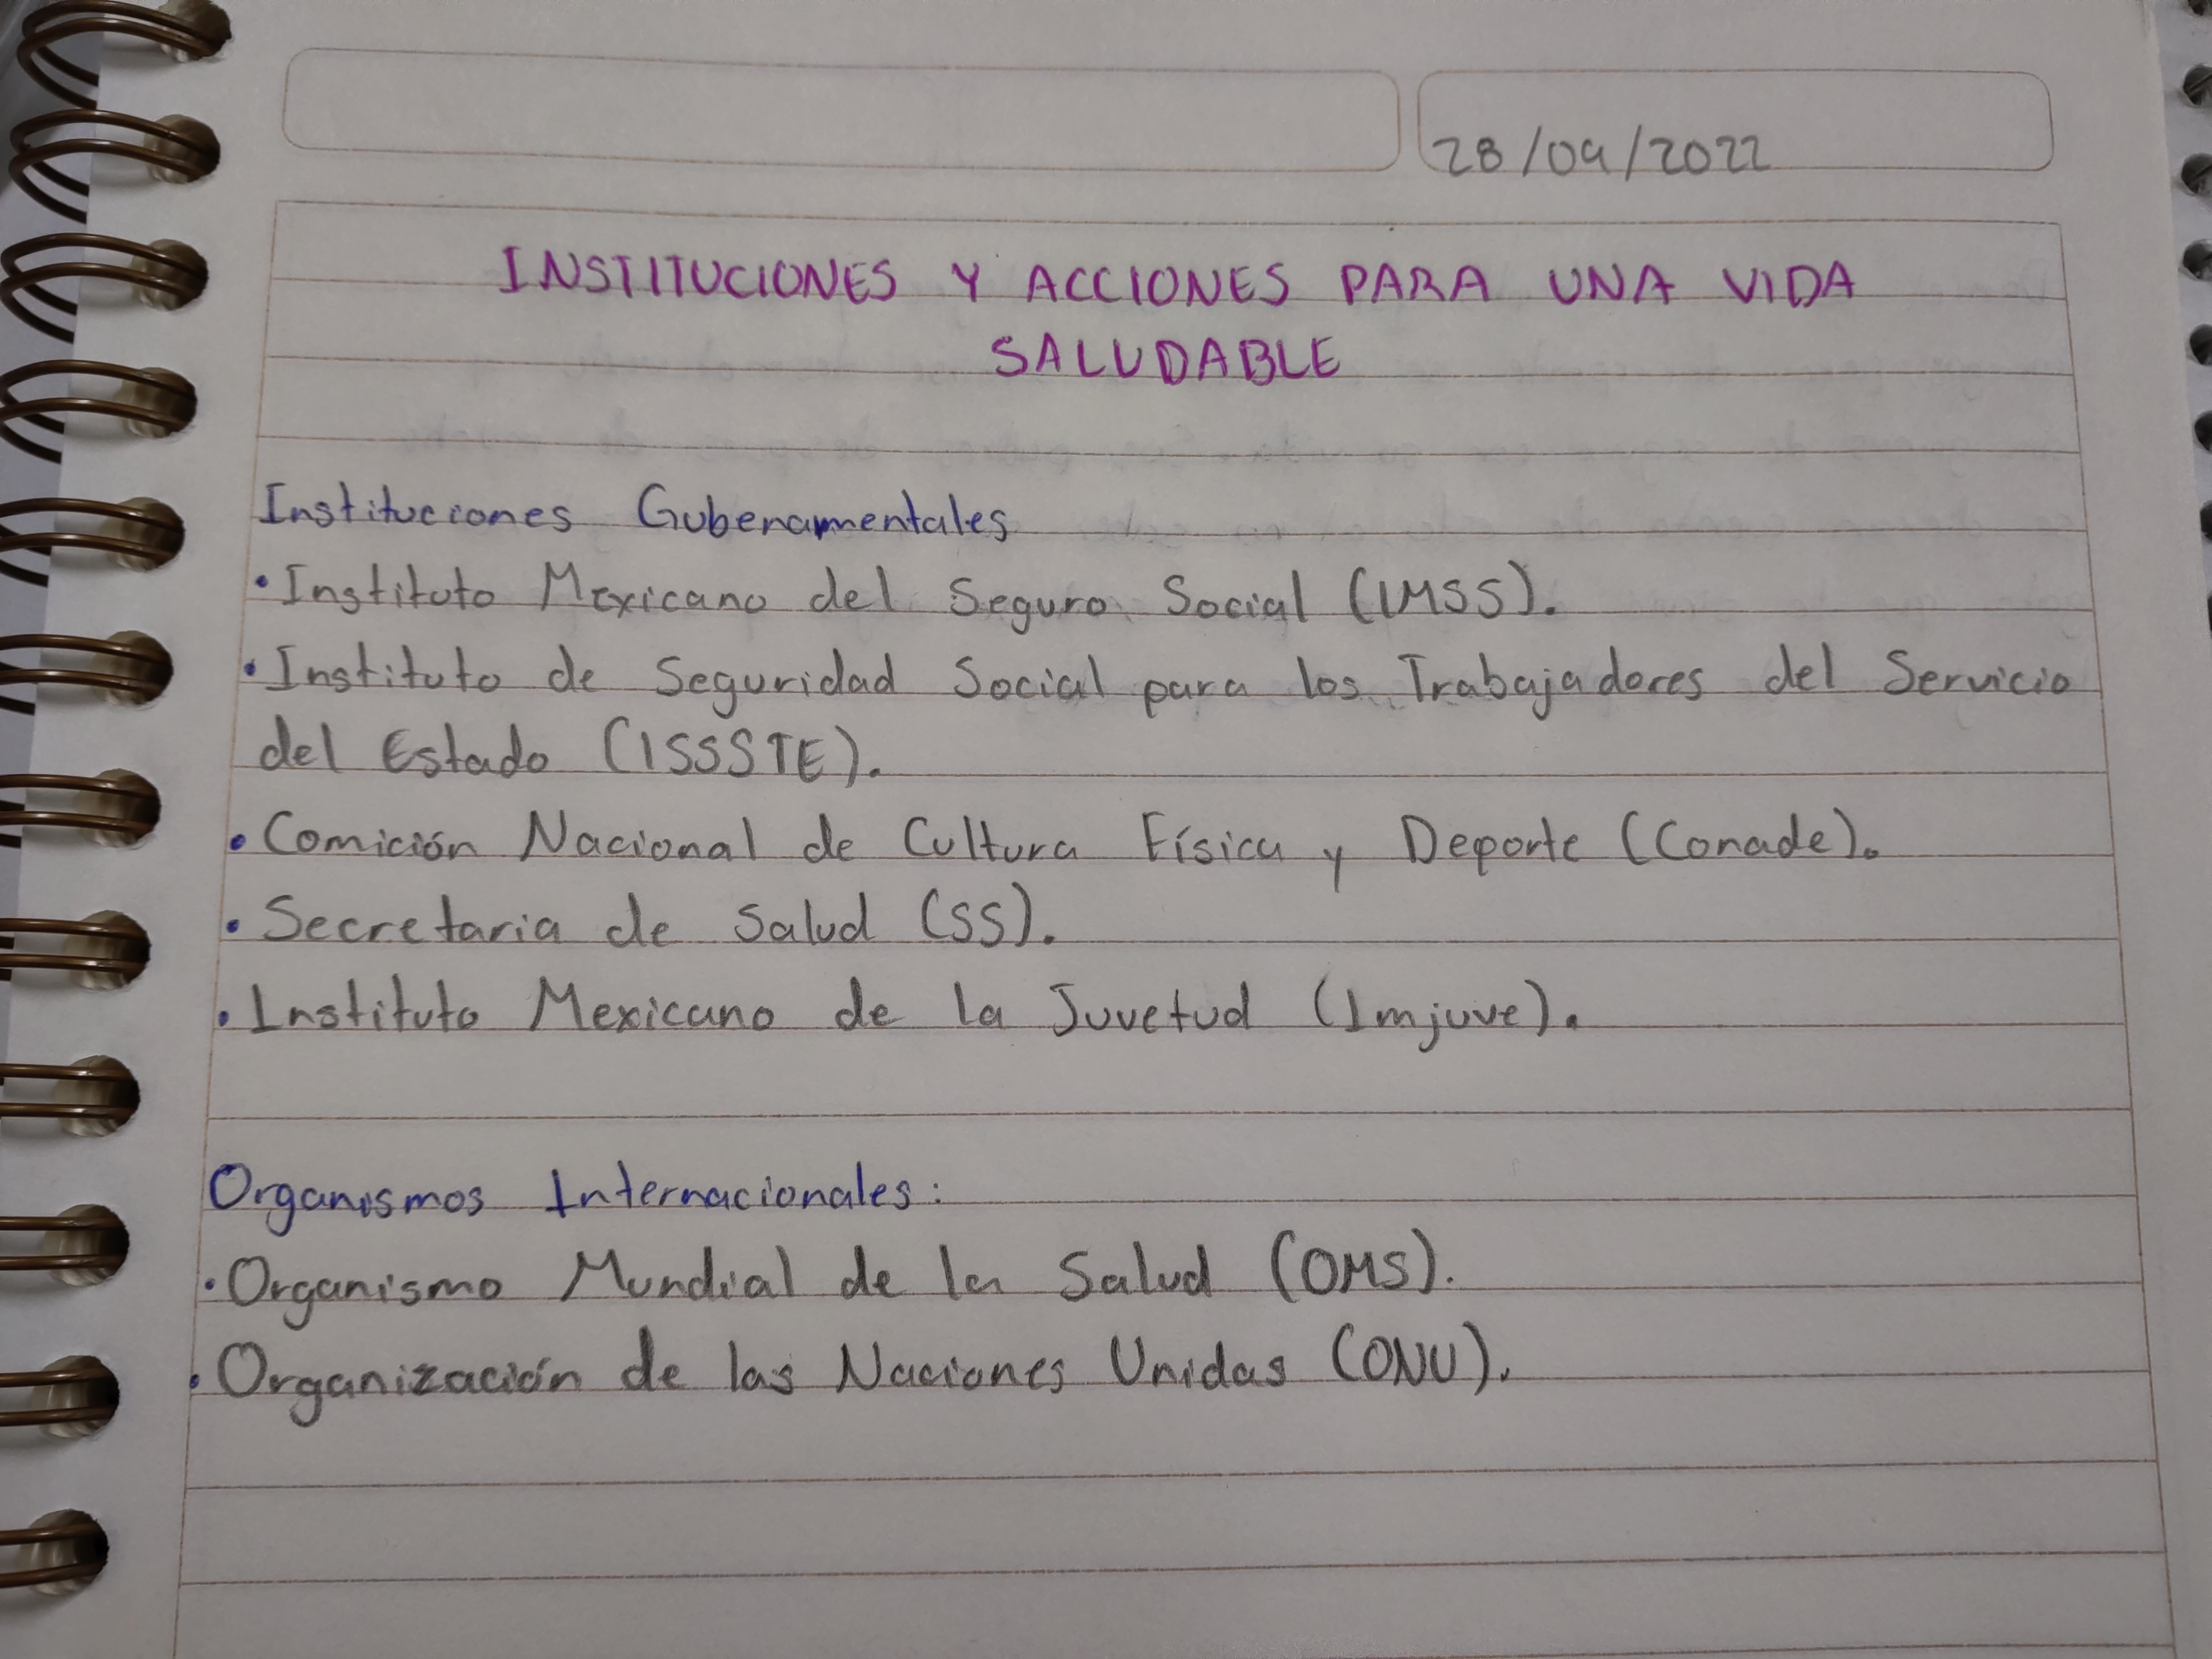 28/04/2022
INSTITUCIONES Y ACCIONES PARA UNA VIDA
SALUDABLE
Instituciones Gubenamentales
• Instituto Mexicano del Seguro Social (IMSS).
• Instituto de Seguridad Social para los Trabajadores del Servicio
del Estado (ISSSTE).
• Comición Nacional de Cultura Física y Deporte (Conade).
• Secretaria de Salud (SS).
• Instituto Mexicano de la Juvetud (Imjuve).
Organismos Internacionales:
• Organismo Mundial de la Salud (OMS).
• Organización de las Naciones Unidas (ONU).